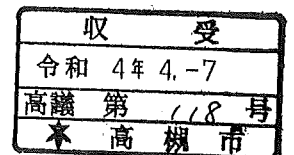 収受
令和 4年 4.-7
高議 第 118 号
★ 高槻市